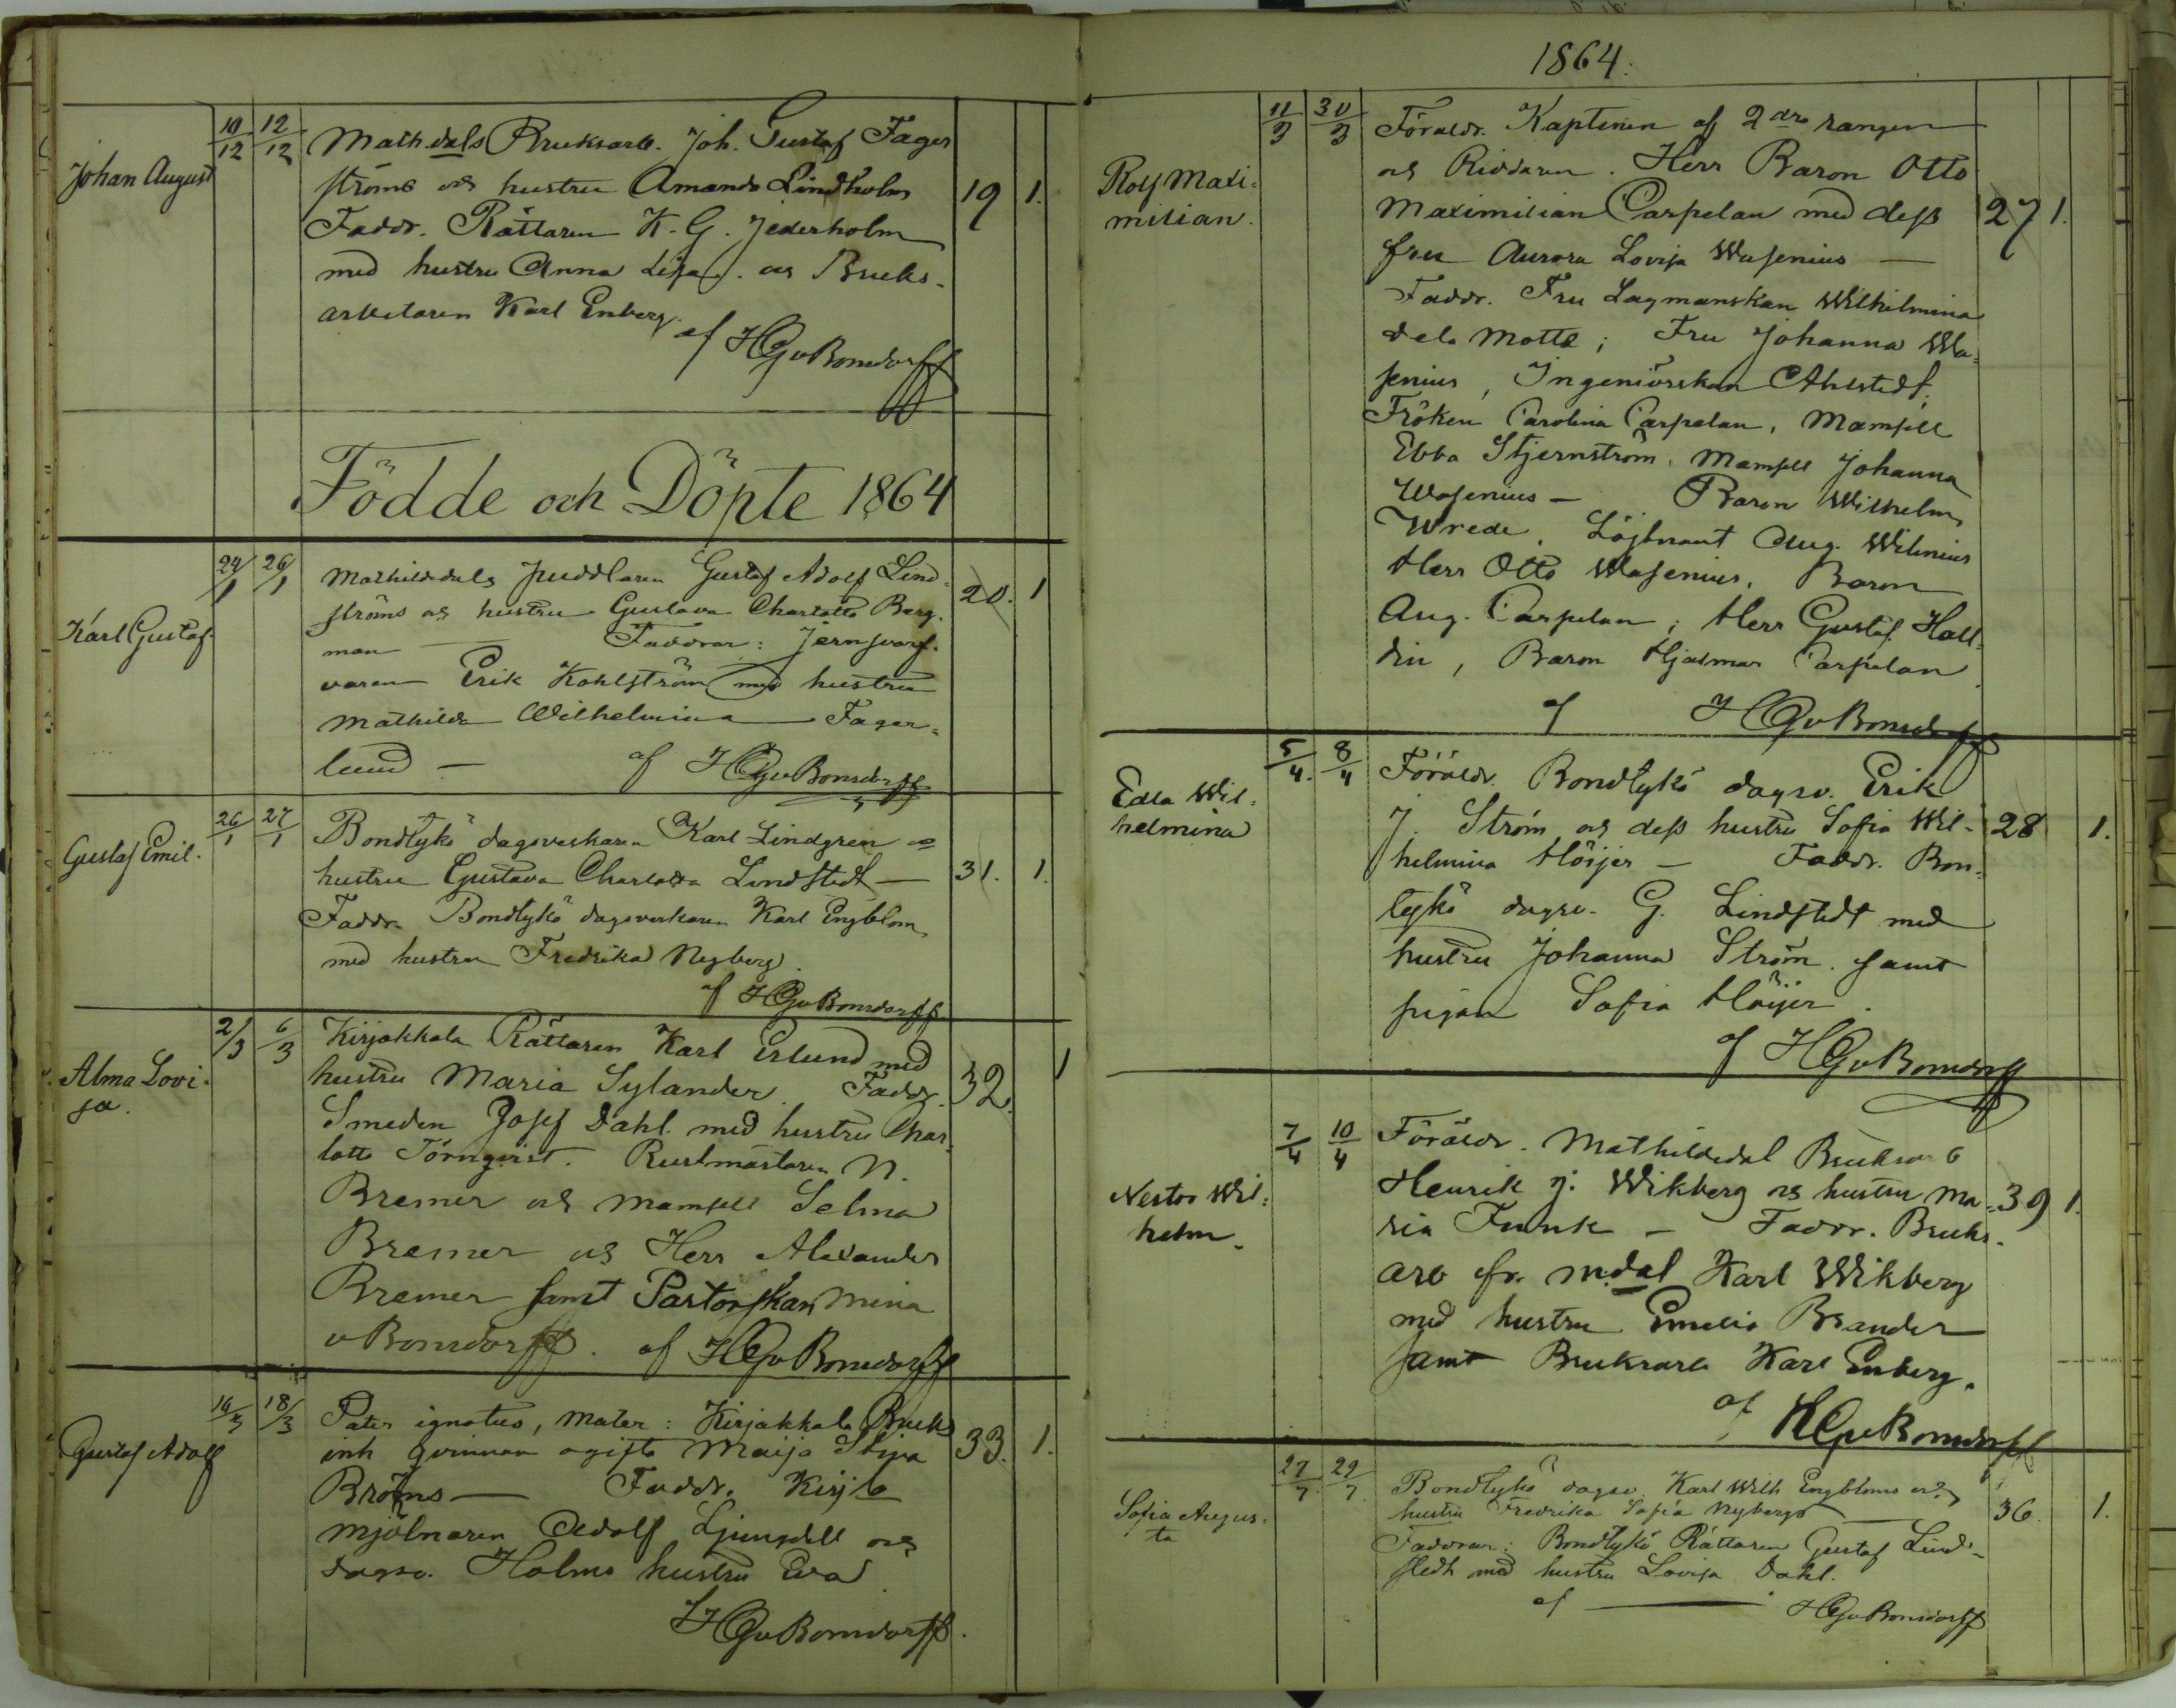 10/12 12/12
Johan August
Math.dals Bruksarb. Joh. Gustaf Fager
ströms och hustru Amanda Lindholm
Faddr. Rättaren K. G. Jederholm
med hustru Anna Lisa. och Bruks-
arbetaren Karl Enberg.
19 1.
af HGvBonsdorff
Födde och Döpte 1864
24/1 26/1
Karl Gustaf
Mathildedals puddlaren Gustaf Adolf Lind-
ströms och hustru Gustava Charlotta Berg-
man — Faddrar: Jern
varen Erik Kohlström med hustru
Mathilda Wilhelmina Fager-
lund —
20. 1
af HGvBonsdorff
26/1 27/1
Gustaf Emil.
Bondtykö dagsverkaren Karl Lindgren o
hustru Gustava Charlotta Lindstedt —
Faddr. Bondtykö dagsverkaren Karl Engblom,
med hustru Fredrika Nyberg.
31. 1.
af HGvBonsdorff
2/3 6/3
Alma Lovi-
sa.
Kirjakkala Rättaren Karl Erlund med
hustru Maria Sylander. Faddr.
Smeden Josef Dahl. med hustru Char-
lotta Törnqvist. Rustmästaren N.
Bremer och Mamsell Selma
Bremer och Herr Alexander
Bremer samt Pastorskan Mina
vBonsdorff. af HGvBonsdorff
32. 1
16/3 18/3
Gustaf Adolf
Pater ignotus, Mater: Kirjakkala Bruks
inh qvinnan ogifta Maija Stina
Bröms — Faddr. Kirj
mjölnaren Adolf Ljungdell och
dagsv. Holms hustru Eva
33. 1.
HGvBonsdorff.
1864.
11/3 30/3
Rolf Maxi-
milian.
Föräldr. Kaptenen af 2dra rangen
och Riddaren. Herr Baron Otto
Maximilian Carpelan med dess
fru Aurora Lovisa Wasenius —
Faddr. Fru Lagmanskan Wilhelmina
dela Motte; Fru Johanna Wa-
senius, Ingeniörskan Ahlstedt,
Fröken Carolina Carpelan, Mamsell
Ebba Stjernström. Mamsell Johanna
Wasenius — Baron Wilhelm
Wrede. Löjtnant Aug. Wilenius
Herr Otto Wasenius. Baron
Aug. Carpelan; Herr Gustaf Hall-
din, Baron Hjalmar Carpelan
27 1.
af HGvBonsdorff
5/4. 8/4
Edla Wil-
helmina
Föräldr. Bondtykö dagsv. Erik
J. Ström och dess hustru Sofia Wil-
helmina Höijer — Faddr. Bon-
tykö dagsv. G. Lindstedt med
hustru Johanna Ström. samt
pigan Sofia Höijer.
28 1.
af HGvBonsdorff
7/4 10/4
Nestor Wil-
helm.
Föräldr. Mathildedal Bruksarb
Henrik J. Wikberg och hustru Ma-
ria Funk — Faddr. Bruks-
arb fr. M.dal Karl Wikberg
med hustru Emelia Brander
samt Bruksarb Karl Enberg.
39 1.
af HGvBonsdorff
27/7. 29/7
Sofia Augus-
ta
Bondtykö dagsv. Karl Wilh Engbloms och
hustru Fredrika Sofia Nybergs —
Faddrar: Bondtykö Rättaren Gustaf Lind-
stedt med hustru Lovisa Dahl.
36. 1.
af — HGvBonsdorff